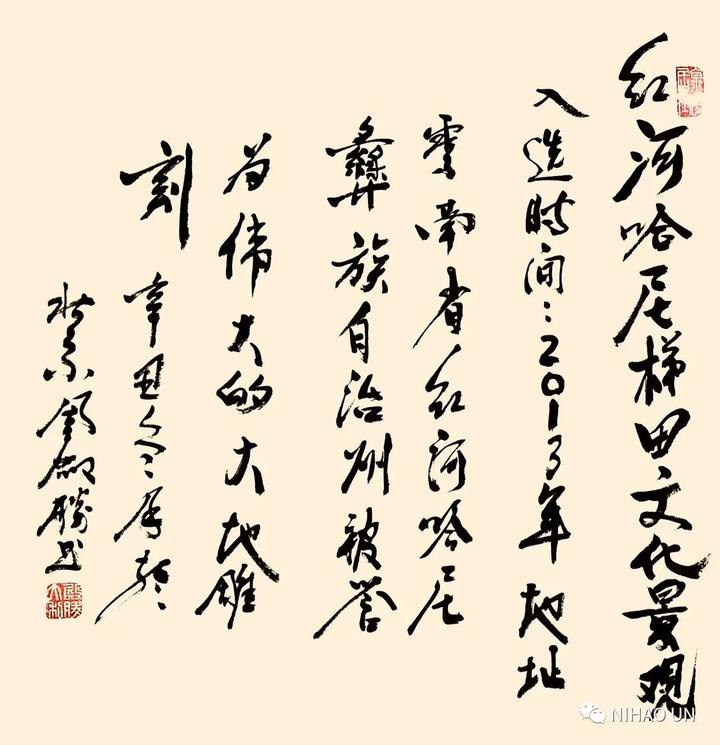 红河哈尼梯田文化景观
入选时间：2013年 地址
云南省红河哈尼
彝族自治州被誉
为伟大的大地雕
刻 辛丑冬月
于北京 胜书
NIHAO UN